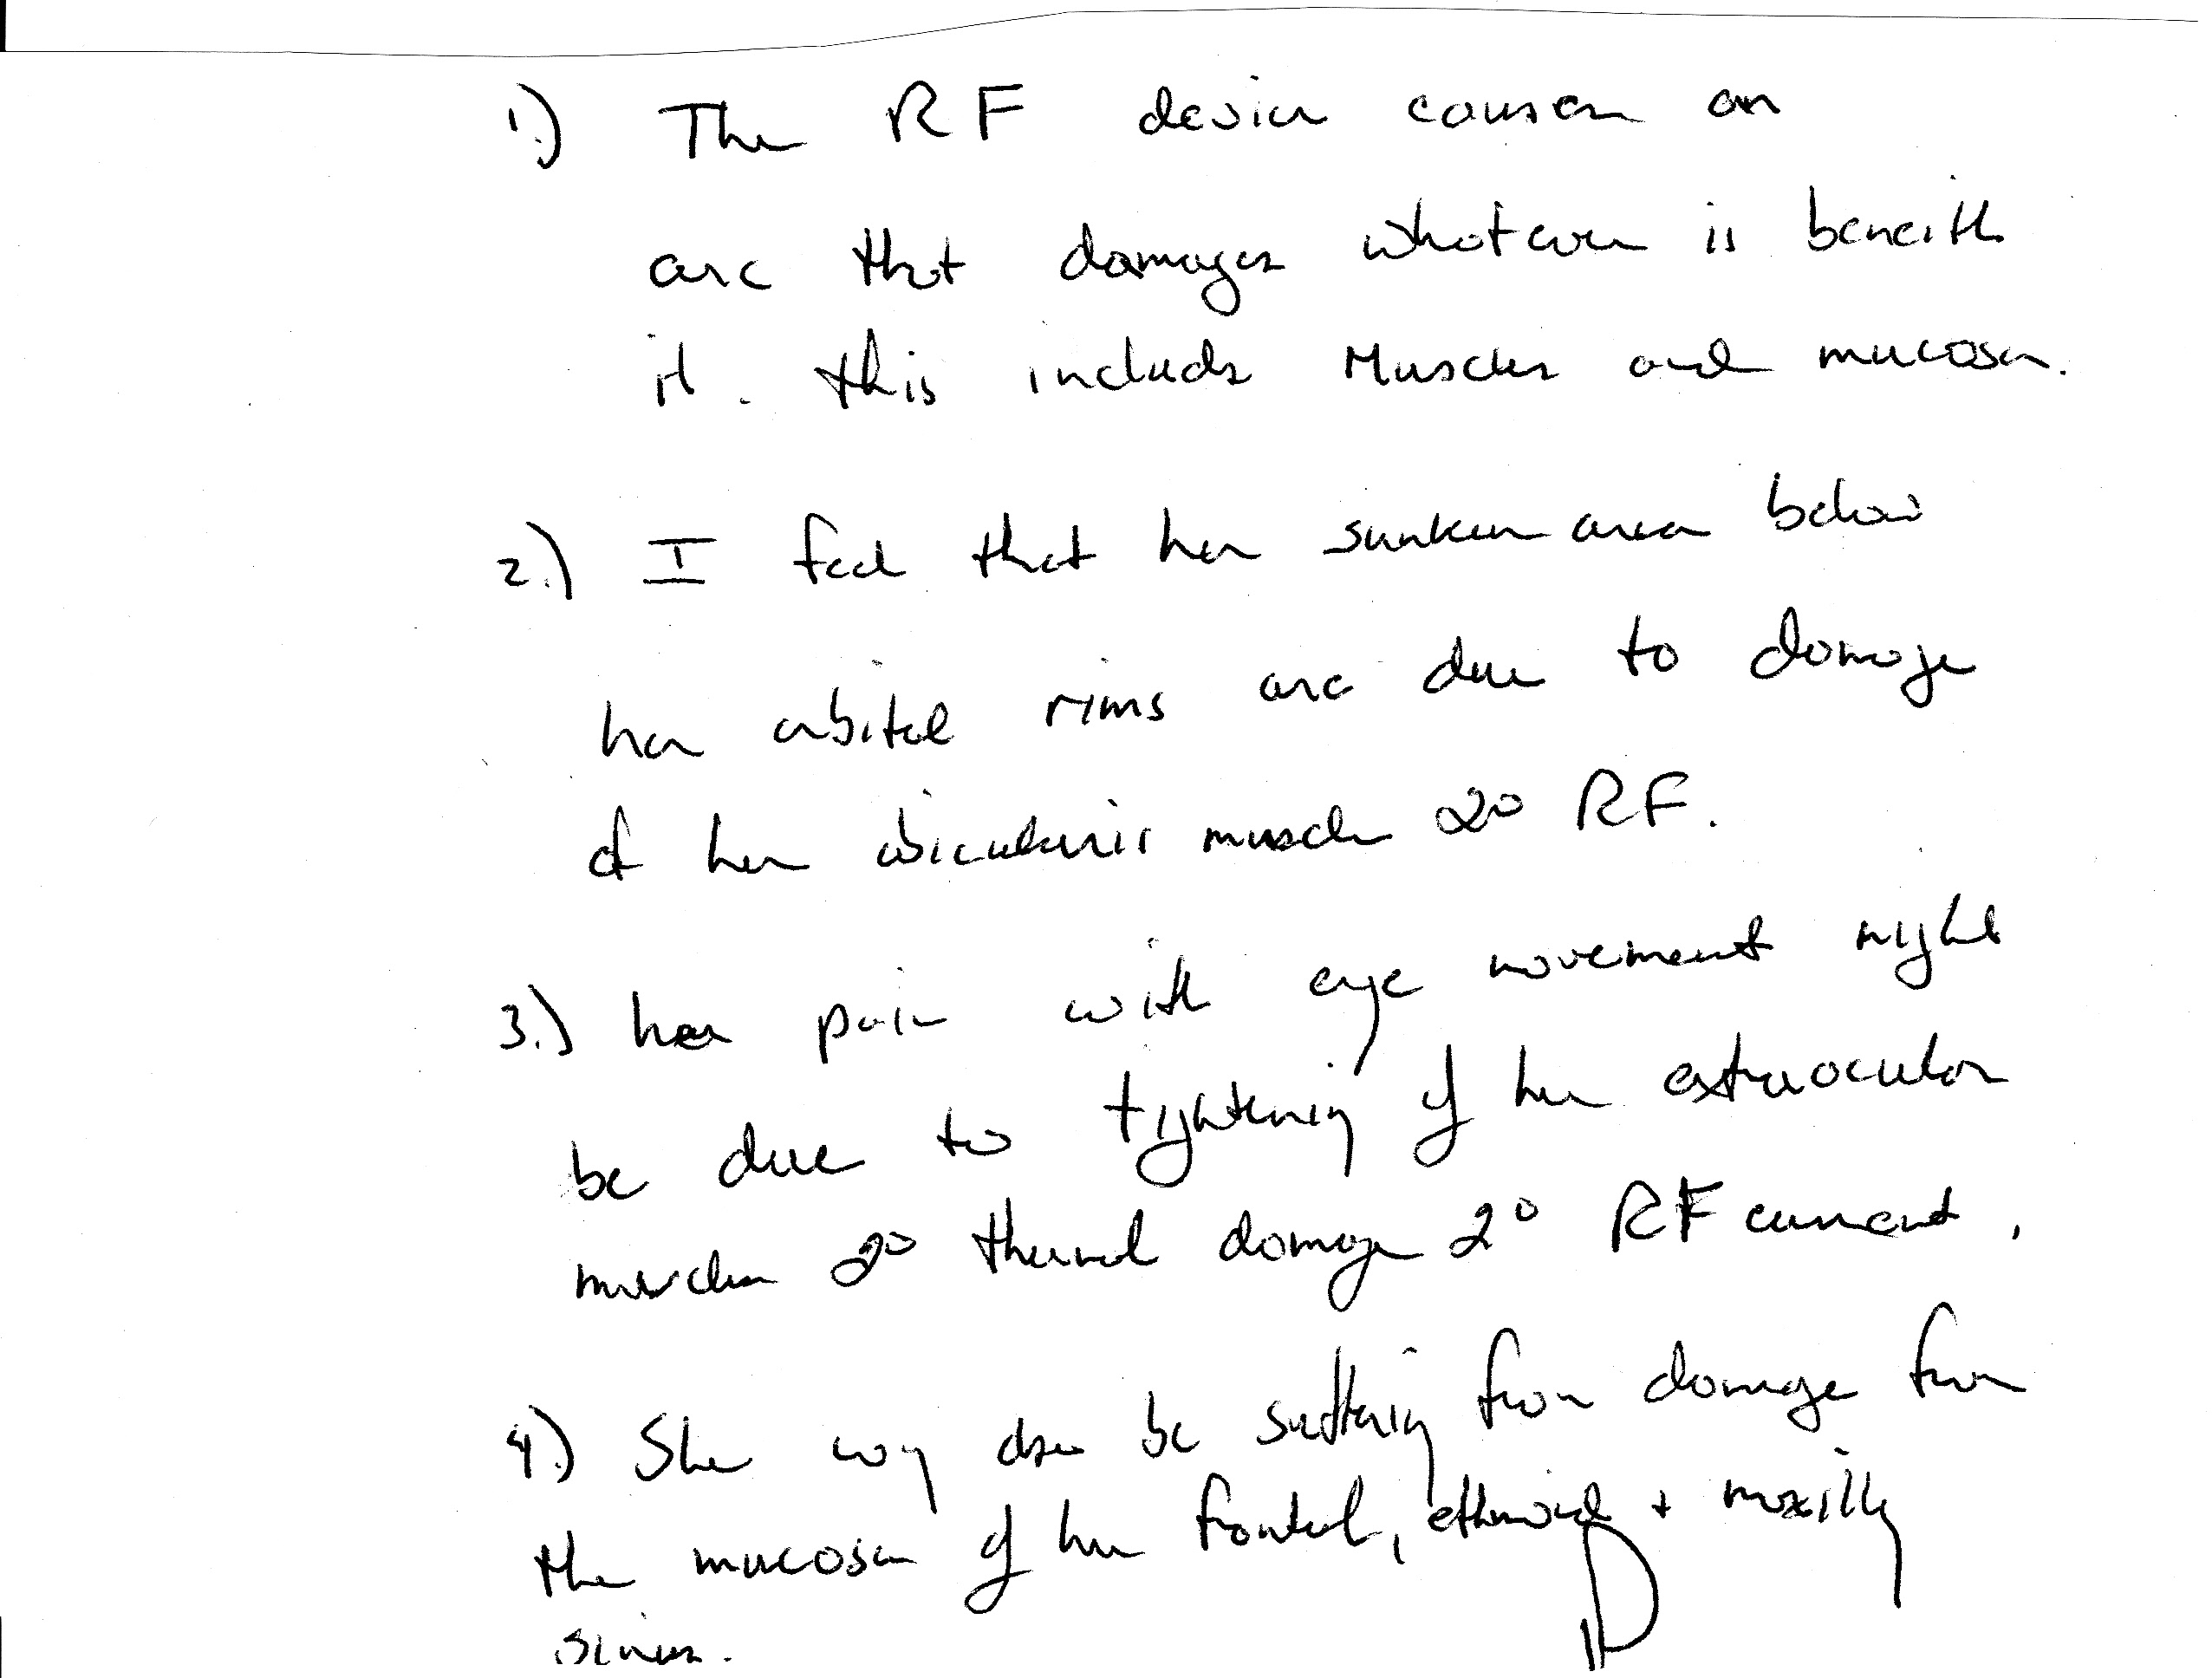 1.) The RF device causes an
arc that damages whatever is beneith
it. this includs Muscles and mucosa.
2.) I feel that her sunken area below
her orbital rims are due to damage
of her obicularis muscle 2° RF.
3.) her pain with eye movement might
be due to tightening of her extraocular
muscles 2° thermal damage 2° RF current.
4.) She may also be suffering from damage from
the mucosa of her frontal, ethmoid + maxilly
sinus.